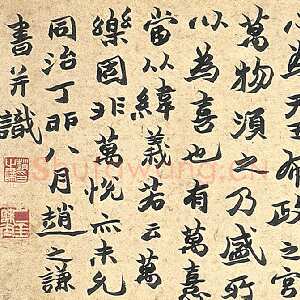 心為天王布政之宮
萬物須之乃盛所
以為喜也有萬熹
當从緯義若云萬
樂固非萬悅亦未允
同治丁卯八月趙之謙
書并識